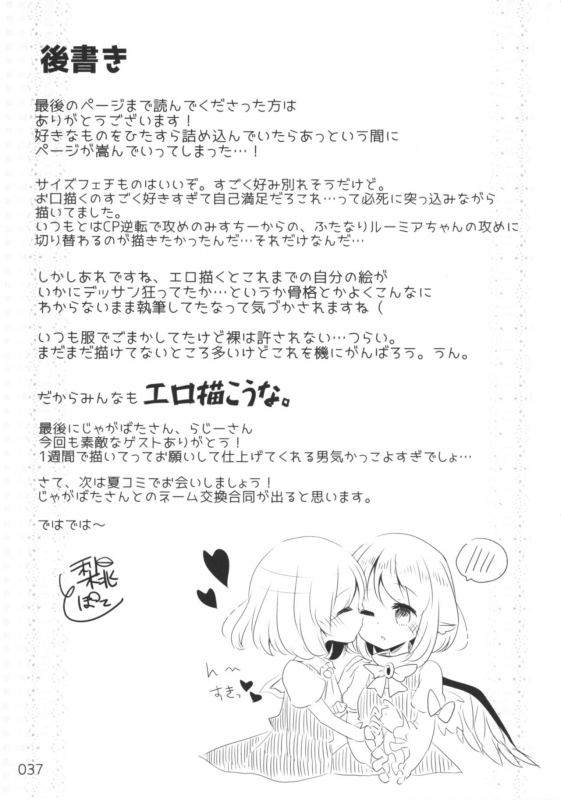 後書き
最後のページまで読んでくださった方は
ありがとうございます！
好きなものをひたすら詰め込んでいたらあっという間に
ページが嵩んでいってしまった…！
サイズフェチものはいいぞ。すごく好み別れそうだけど。
お口描くのすごく好きすぎて自己満足だろこれ…って必死に突っ込みながら
描いてました。
いつもとはCP逆転で攻めのみすちーからの、ふたなりルーミアちゃんの攻めに
切り替わるのが描きたかったんだ…それだけなんだ…
しかしあれですね、エロ描くとこれまでの自分の絵が
いかにデッサン狂ってたか…というか骨格とかよくこんなに
わからないまま執筆してたなって気づかされますね（
いつも服でごまかしてたけど裸は許されない…つらい。
まだまだ描けてないところ多いけどこれを機にがんばろう。うん。
だからみんなも エロ描こうな。
最後にじゃがばたさん、らじーさん
今回も素敵なゲストありがとう！
1週間で描いてってお願いして仕上げてくれる男気かっこよすぎでしょ…
さて、次は夏コミでお会いしましょう！
じゃがばたさんとのネーム交換合同が出ると思います。
ではでは～
梨桃
ぽて
ん～
すきっ
037